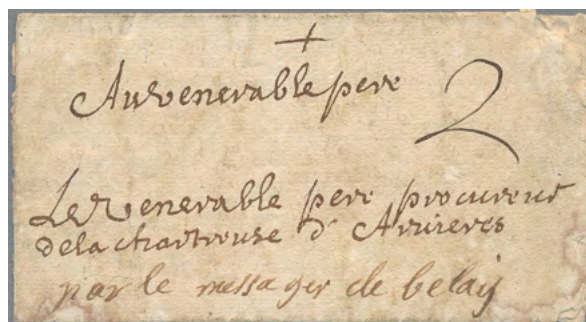 +
Au venerable pere 2
Le venerable pere procureur
de la chartreuse d' Arvieres
par le messager de belaÿ